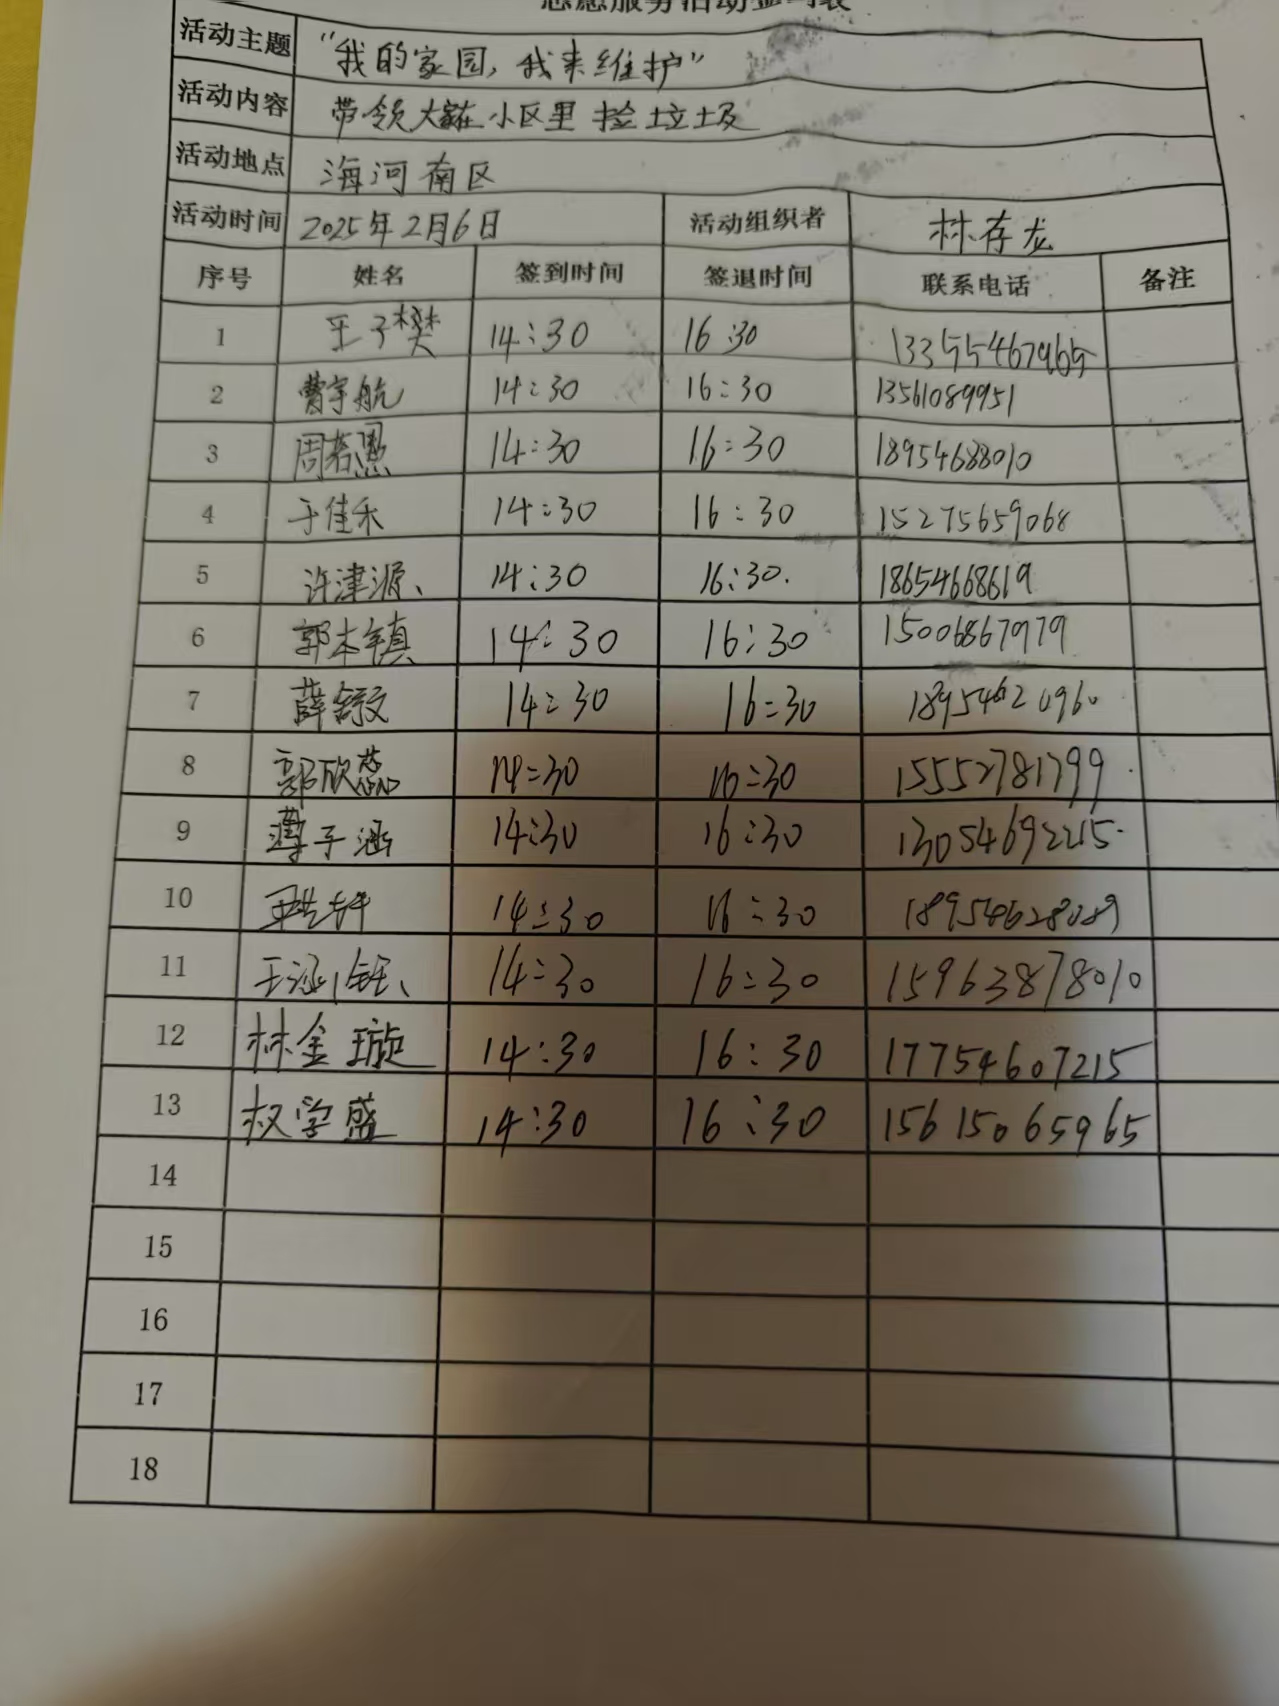 志愿服务活动签到表
活动主题 “我的家园，我来维护”
活动内容 带领大家在小区里捡垃圾
活动地点 海河南区
活动时间 2025年2月6日 活动组织者 林存龙
序号 姓名 签到时间 签退时间 联系电话 备注
1 王子樊 14:30 16:30 13355467965
2 曹宇航 14:30 16:30 13561089951
3 周若愚 14:30 16:30 18954688010
4 于佳禾 14:30 16:30 15275659068
5 许津源、 14:30 16:30. 18654668619
6 郭本镇 14:30 16:30 15006867979
7 薛舒文 14:30 16:30 18954620960
8 郭欣蕊 14:30 16:30 15552781799
9 子涵 14:30 16:30 13054692215
10 14:30 16:30 18954628089
11 14:30 16:30 15963878010
12 林金璇 14:30 16:30 17754607215
13 权学盛 14:30 16:30 15615065965
14
15
16
17
18